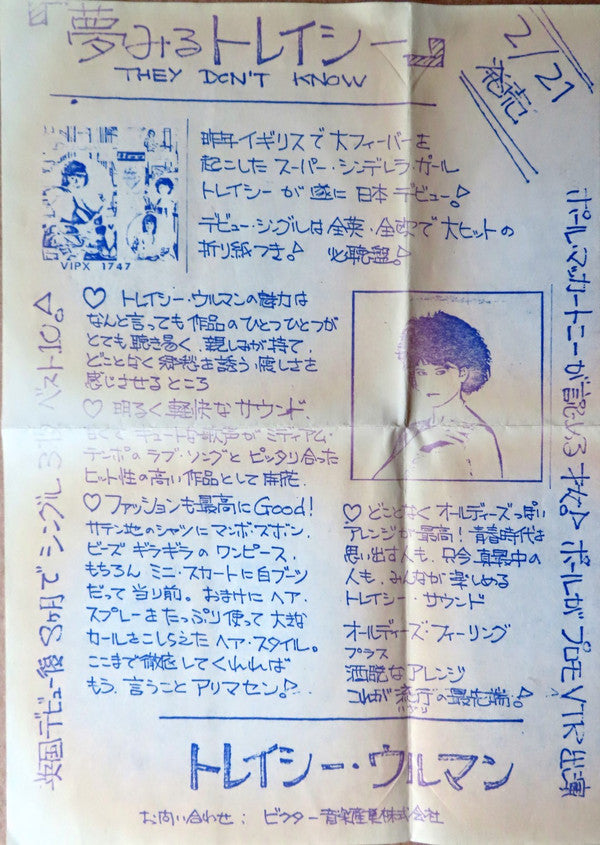 夢みるトレイシー
THEY DON'T KNOW
2/21
発売
昨年イギリスで大フィーバーを
起こしたスーパー・シンデレラ・ガール
トレイシーが遂に日本デビュー!
デビュー・シングルは全英・全欧で大ヒットの
折り紙つき! 必聴盤!
VIPX 1747
♡ トレイシー・ウルマンの魅力は
なんと言っても作品のひとつひとつが
とても聴き易く、親しみが持て、
どことなく郷愁を誘う優しさを
感じさせるところ
♡ 明るく軽快なサウンド
甘くてキュートな歌声がミディアム・
テンポのラブ・ソングとピッタリ合った
ヒット性の高い作品として開花
♡ ファッションも最高にGood!
サテン地のシャツにマンボ・ズボン、
ビーズギラギラのワンピース、
もちろんミニ・スカートに白ブーツ
だって当り前。おまけにヘア・
スプレーをたっぷり使って大粒
カールをこしらえたヘア・スタイル。
ここまで徹底してくれれば
もう、言うことアリマセン!
♡ どことなくオールディーズっぽい
アレンジが最高! 青春時代を
思い出す人も、只今真最中の
人も、みんなが楽しめる
トレイシー・サウンド
オールディーズ・フィーリング
プラス
洒脱なアレンジ
これが流行の最先端!
英国デビュー後8ヶ月でシングル3枚ベスト10!
ポール・マッカートニーが認める才女! ポールがプロモVTR出演
トレイシー・ウルマン
お問い合わせ: ビクター音楽産業株式会社